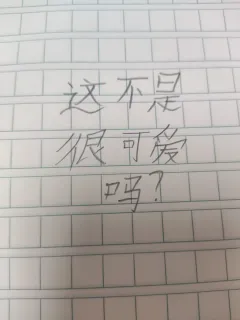 这不是
很可爱
吗?